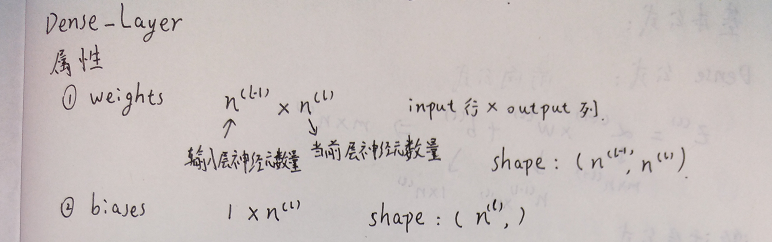 Dense-Layer
属性
① weights n^(l-1) × n^(l) input 行 × output 列.
输入层神经元数量 当前层神经元数量 shape: (n^(l-1), n^(l))
② biases 1 × n^(l) shape: (n^(l),)